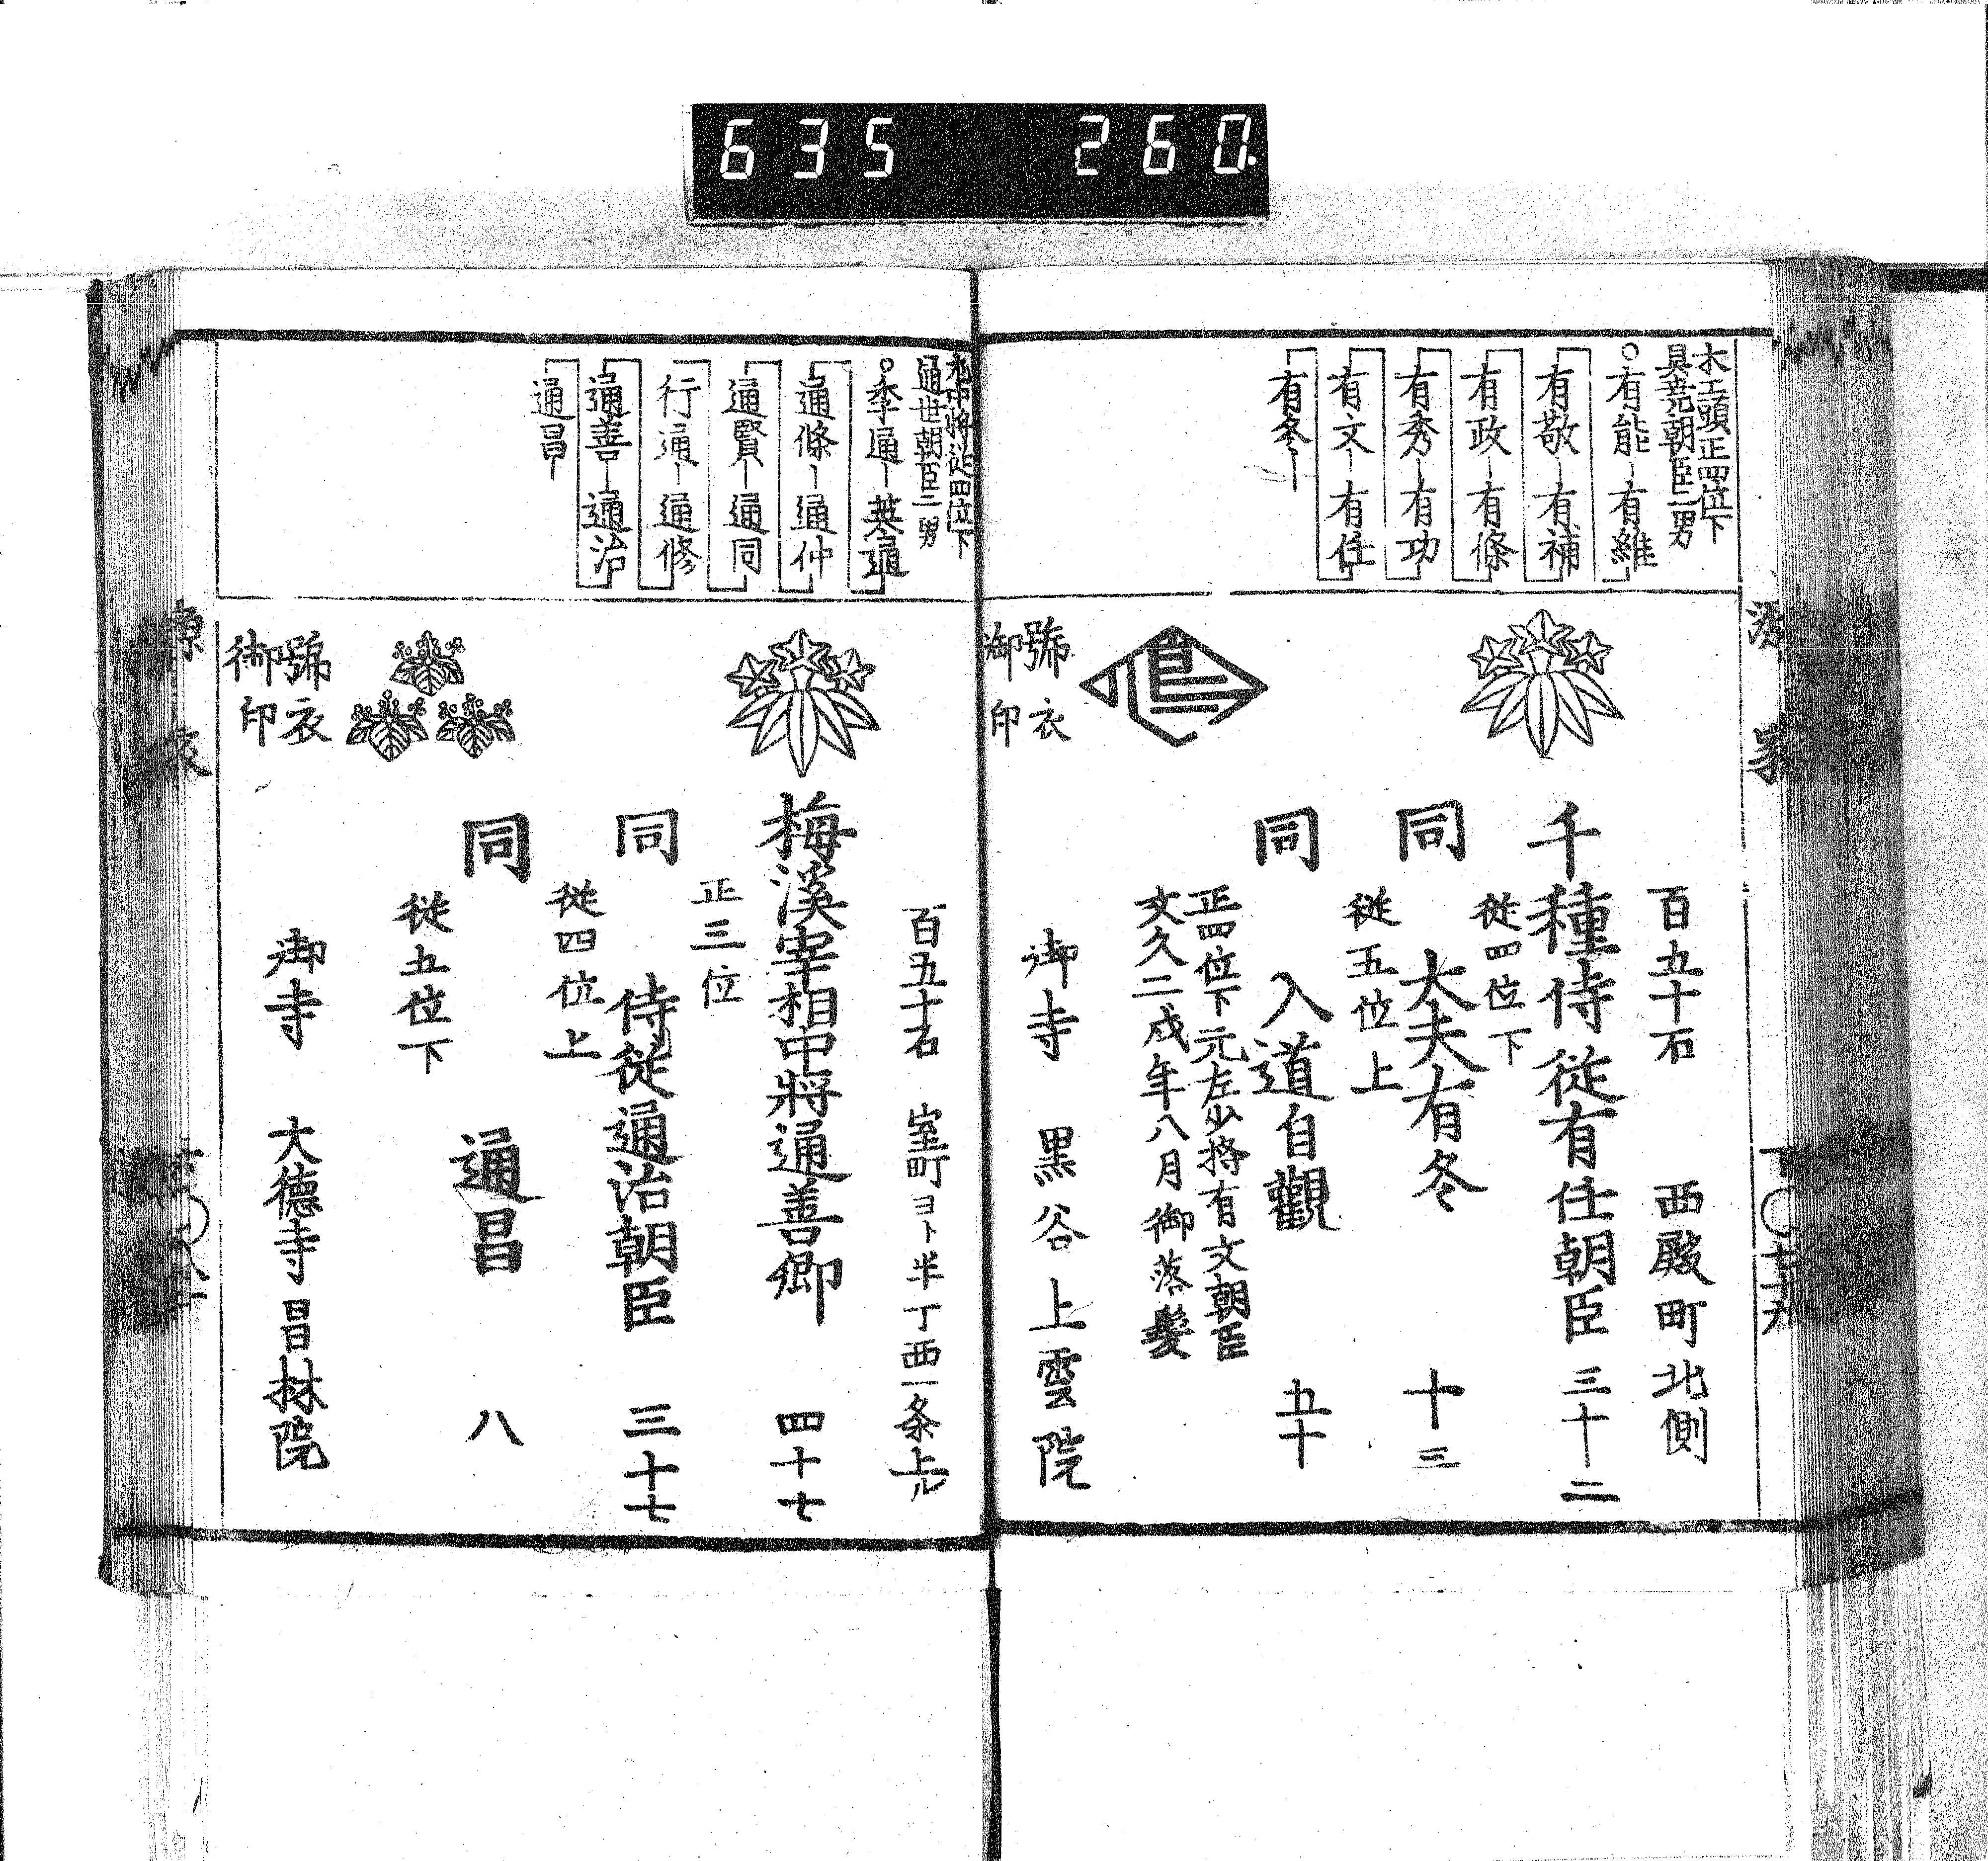 635 260.
木工頭正四位下
具尭朝臣二男
○有能—有維
有敬—有補
有政—有條
有秀—有功
有文—有任
有冬—
百五十石 西殿町北側
千種侍從有任朝臣 三十二
從四位下
同 大夫有冬 十三
從五位上
同 入道自觀 五十
正四位下元左少將有文朝臣
文久二戌年八月御落髮
御寺 黒谷上雲院
號衣
御印
左中將從四位下
通世朝臣二男
○季通—英通
通條—通仲
通賢—通同
行通—通修
通善—通治
通昌—
百五十石 室町ヨト半丁西一条上ル
梅溪宰相中將通善卿 四十七
正三位
同 侍從通治朝臣 三十七
從四位上
同 通昌 八
從五位下
御寺 大德寺昌林院
號衣
御印